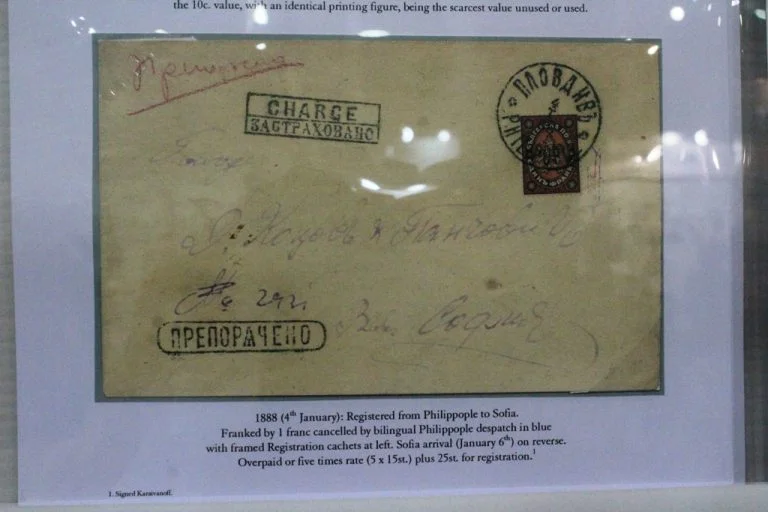 the 10c. value, with an identical printing figure, being the scarcest value unused or used.
CHARGE
ЗАСТРАХОВАНО
ПЛОВДИВЪ
Д. Коцовъ и Панчовъ
№ 242
ПРЕПОРѪЧЕНО
София
1888 (4th January): Registered from Philippople to Sofia.
Franked by 1 franc cancelled by bilingual Philippople despatch in blue
with framed Registration cachets at left. Sofia arrival (January 6th) on reverse.
Overpaid or five times rate (5 x 15st.) plus 25st. for registration.1
1. Signed Karaivanoff.